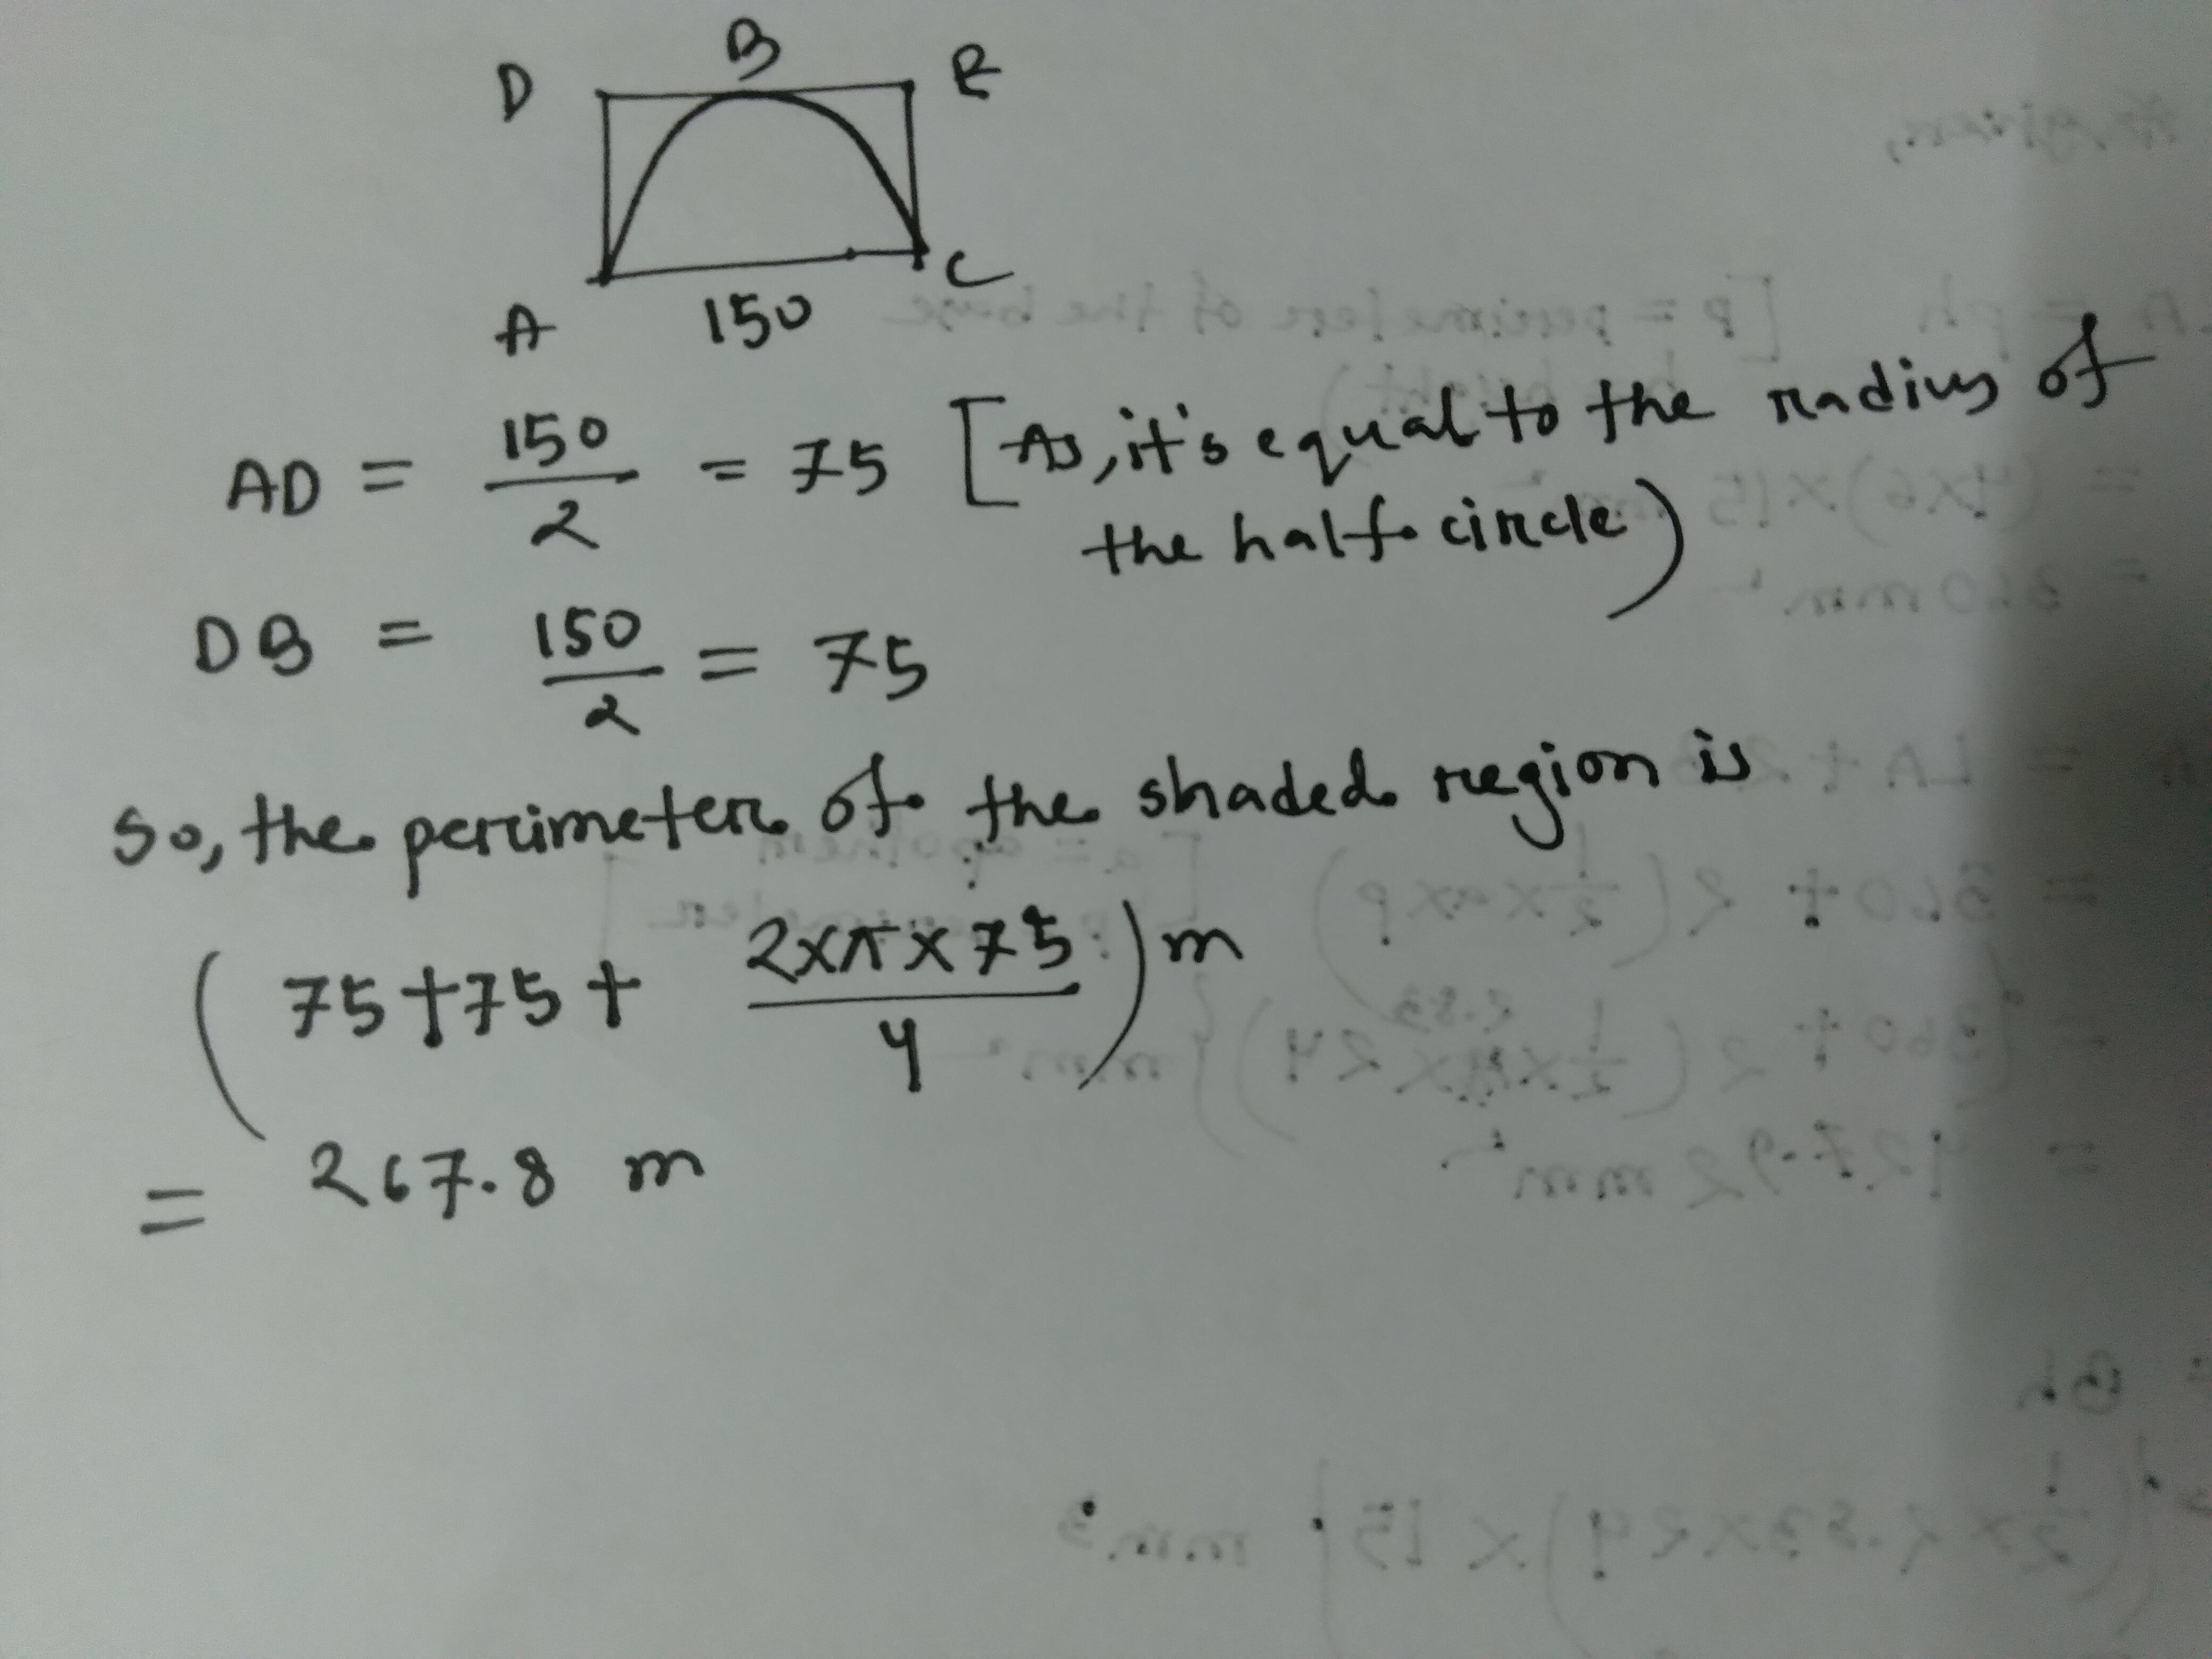 D B E
A 150 C
AD = 150/2 = 75 [As, it's equal to the radius of
the half circle)
DB = 150/2 = 75
So, the perimeter of the shaded region is
(75+75+ 2×π×75/4) m
= 267.8 m